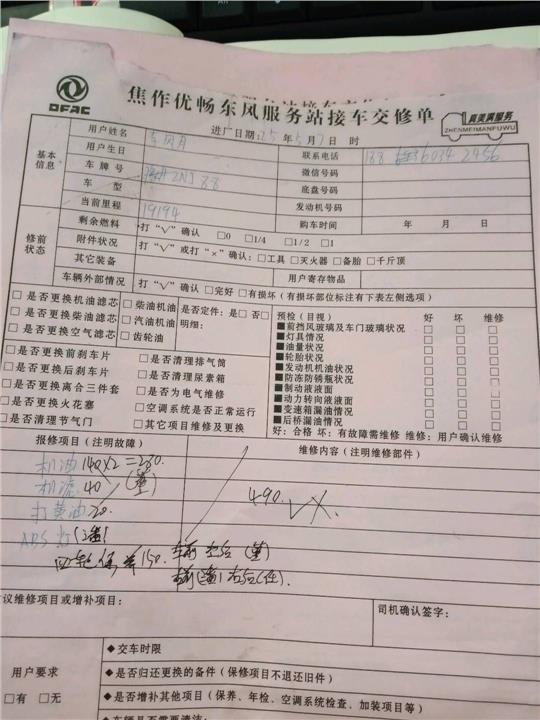 DFAC
焦作优畅东风服务站接车交修单
真美满服务
ZHENMEIMANFUWU
用户姓名 进厂日期:25年5月7日 联系电话
基本信息
用户生日 微信号码
车牌号 底盘号码
车型 发动机号码
当前里程 19194 购车时间 年 月 日
修前状态
剩余燃料 打“√”确认 □0 □1/4 □1/2 □1
附件状况 打“√”或打“×”确认:□工具 □灭火器 □备胎 □千斤顶
其它装备 用户寄存物品
车辆外部情况 打“√”确认 □完好 □有损坏(有损坏部位标注有下表左侧选项)
□是否更换机油滤芯 □柴油机油 是否定件:是□ 否□
□是否更换柴油滤芯 □汽油机油 明细:
□是否更换空气滤芯 □齿轮油
□是否更换前刹车片 □是否清理排气筒
□是否更换后刹车片 □是否清理尿素箱
□是否更换离合三件套 □是否为电气维修
□是否更换火花塞 □空调系统是否正常运行
□是否清理节气门 □其它项目维修及更换
预检(目视) 好 坏 维修
■前挡风玻璃及车门玻璃状况 □ □ □
■灯具情况 □ □ □
■油量状况 □ □ □
■轮胎状况 □ □ □
■发动机机油状况 □ □ □
■防冻防锈瓶状况 □ □ □
■制动液液面 □ □ □
■动力转向液液面 □ □ □
■变速箱漏油情况 □ □ □
■后桥漏油情况 □ □ □
好:合格 坏:有故障需维修 维修:用户确认维修
报修项目(注明故障) 维修内容(注明维修部件)
机油 140×2=280.
机滤 40
打黄油 20.
490.
ABS灯
四轮保养150.
议维修项目或增补项目:
司机确认签字:
用户要求
□有 □无
◆交车时限
◆是否归还更换的备件(保修项目不退还旧件)
◆是否增补其他项目(保养、年检、空调系统检查、加装项目等)
◆车辆是否需要清洁: